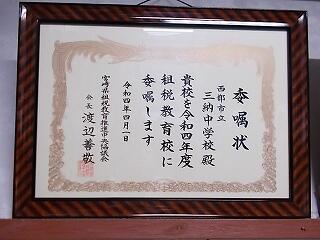 委嘱状
西都市立
三納中学校殿
貴校を令和四年度
租税教育校に
委嘱します
令和四年四月一日
宮崎県租税教育推進中央協議会
会長 渡辺善敬